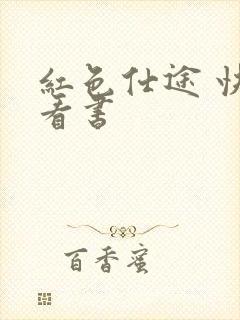 紅色仕途 快
看書
百香蜜